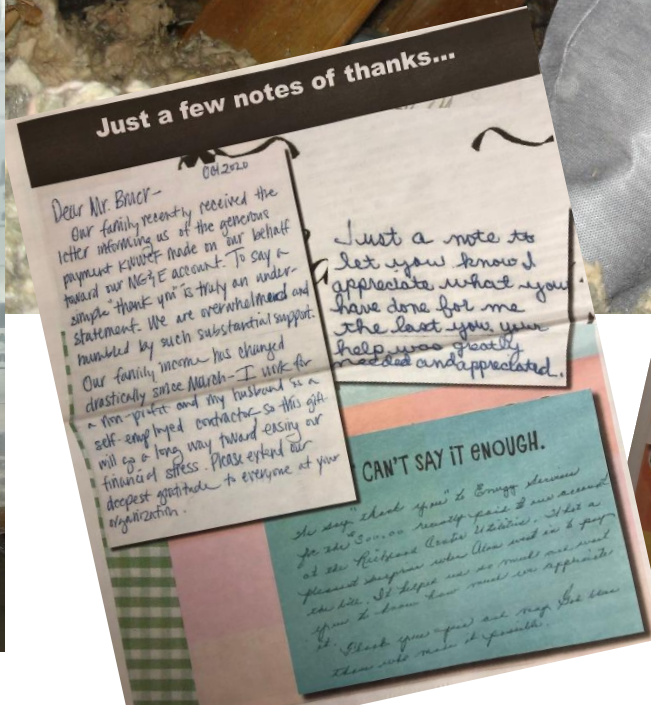 Just a few notes of thanks...
Oct 2020
Dear Mr. Bruer-
Our family recently received the
letter informing us of the generous
payment KWWF made on our behalf
toward our MG&E account. To say a
simple "thank you" is truly an under-
statement. We are overwhelmed and
humbled by such substantial support.
Our family income has changed
drastically since March - I work for
a non-profit and my husband is a
self-employed contractor so this gift
will go a long way toward easing our
financial stress. Please extend our
deepest gratitude to everyone at your
organization.
Just a note to
let you know I
appreciate what you
have done for me
the last you, your
help was greatly
needed and appreciated.
CAN'T SAY IT ENOUGH.
To say "thank you" to Energy Services
for the $300.00 recently paid to our account
at the Richland Center Utilities. What a
pleasant surprise when Alan went in to pay
the bill. It helped us so much and want
you to know how much we appreciate
it. Thank you again and may God bless
those who made it possible.